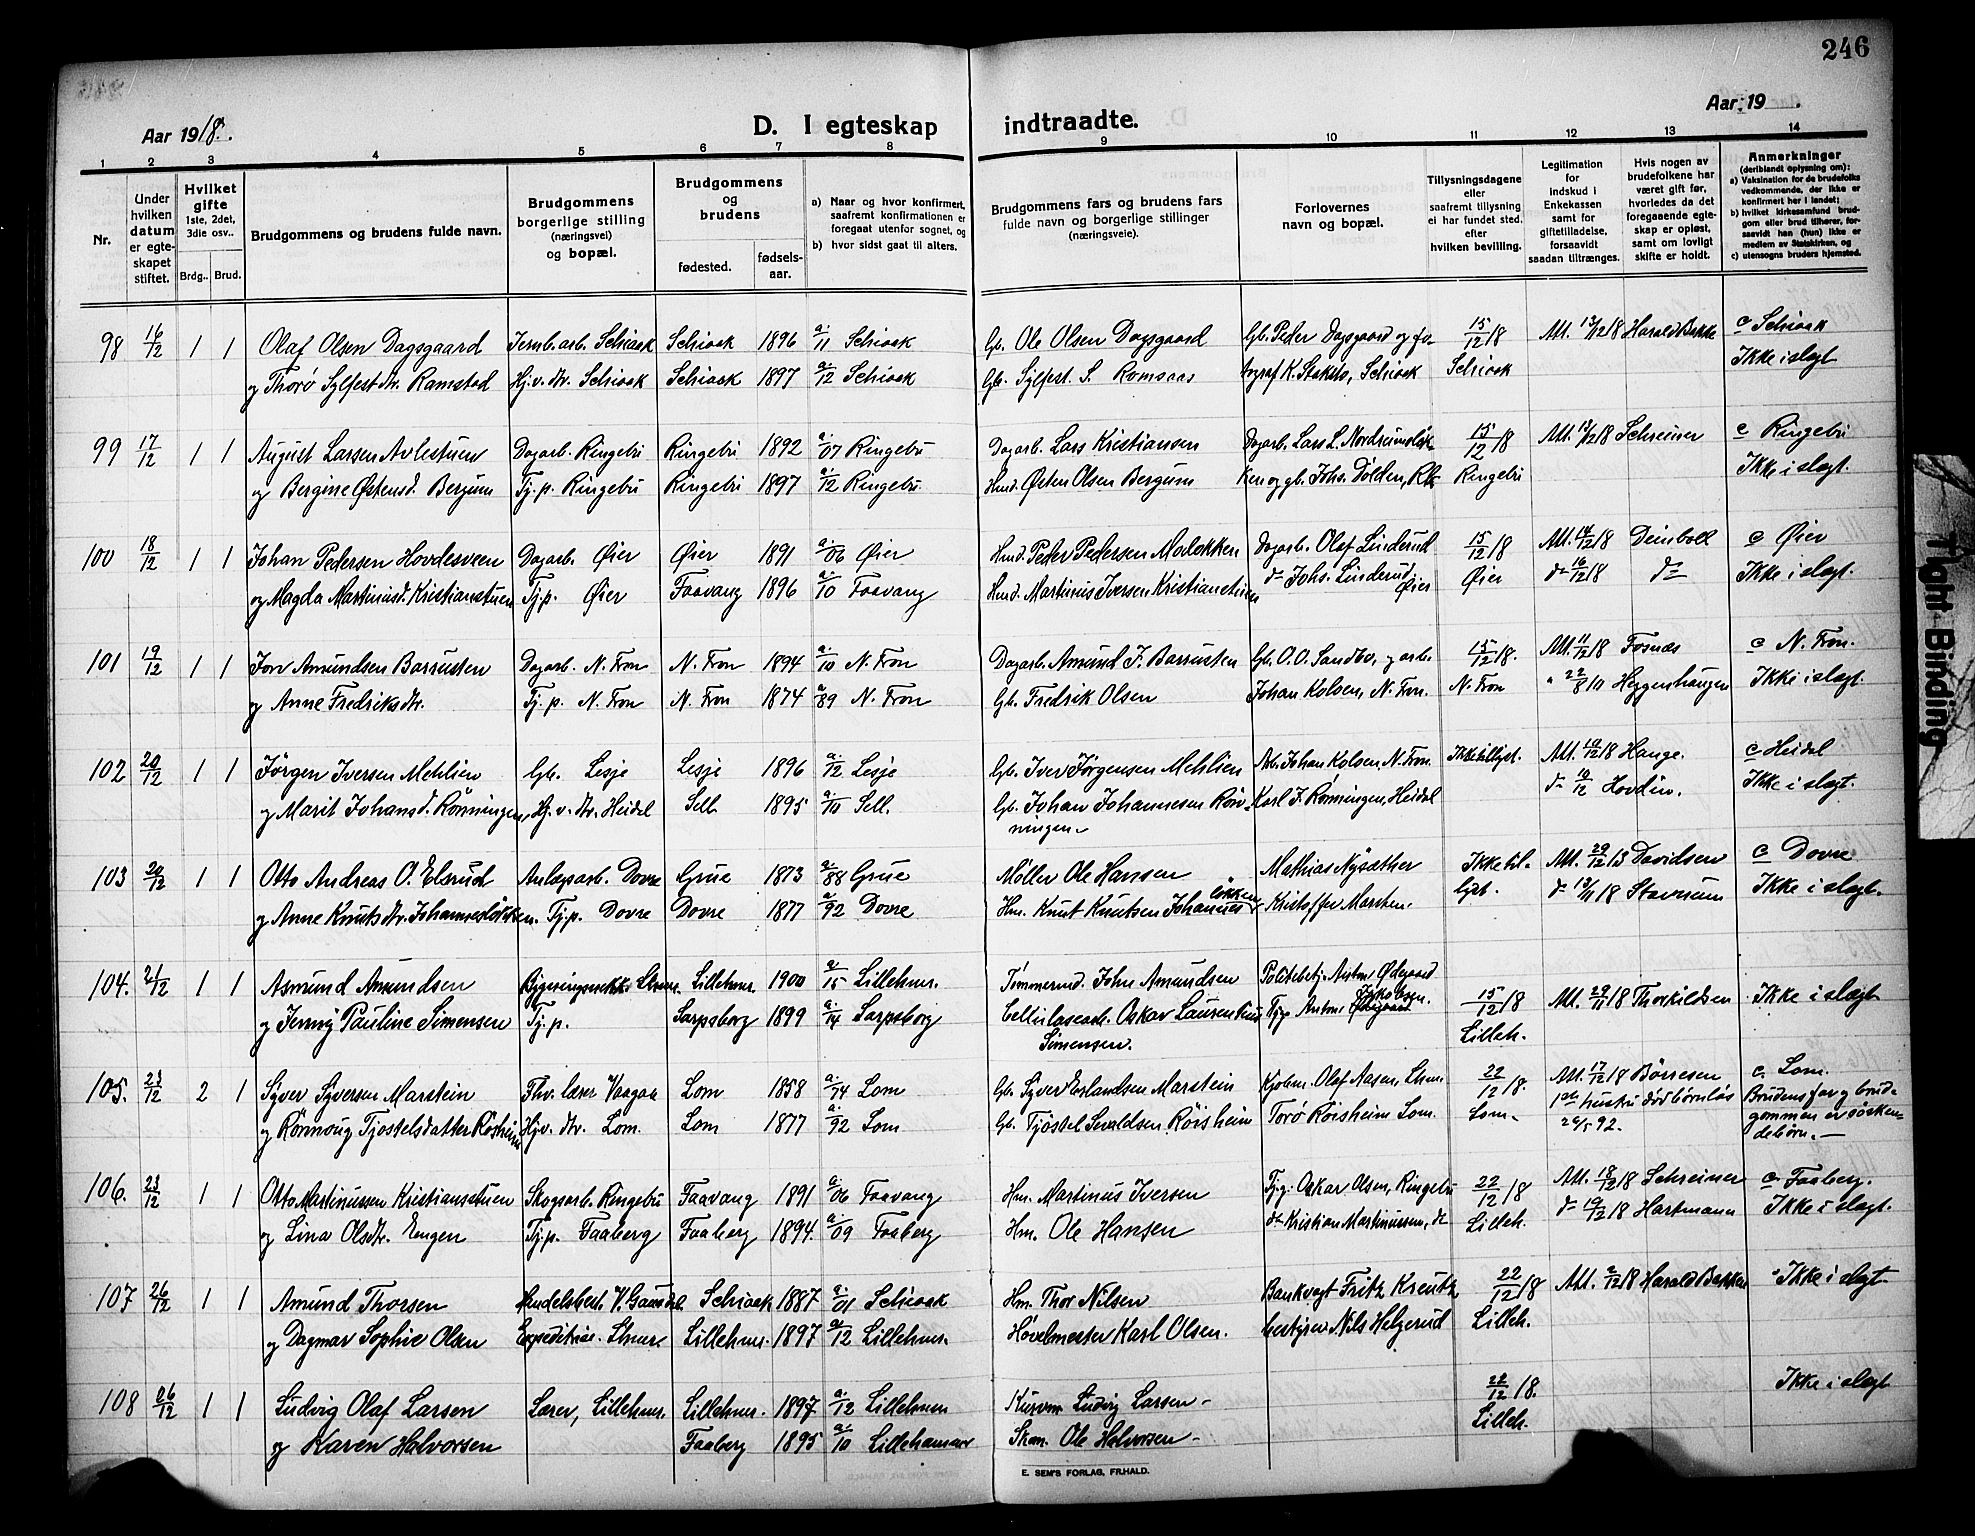 246
Aar 1918.
D. I egteskap indtraadte.
Aar 19 .
1 2 3 4 5 6 7 8 9 10 11 12 13 14
Nr.
Under hvilken datum er egteskapet stiftet.
Hvilket gifte 1ste, 2det, 3die osv..
Brdg.. Brud.
Brudgommens og brudens fulde navn.
Brudgommens borgerlige stilling (næringsvei) og bopæl.
Brudgommens og brudens
fødested. fødselsaar.
a) Naar og hvor konfirmert, saafremt konfirmationen er foregaat utenfor sognet, og
b) hvor sidst gaat til alters.
Brudgommens fars og brudens fars fulde navn og borgerlige stillinger (næringsveie).
Forlovernes navn og bopæl.
Tillysningsdagene eller saafremt tillysning ei har fundet sted, efter hvilken bevilling.
Legitimation for indskud i Enkekassen samt for giftetilladelse, forsaavidt saadan tiltrænges.
Hvis nogen av brudefolkene har været gift før, hvorledes da det foregaaende egteskap er opløst, samt om lovligt skifte er holdt.
Anmerkninger (deriblandt oplysning om): a) Vaksination for de brudefolks vedkommende, der ikke er konfirmert her i landet; b) hvilket kirkesamfund brudgom eller brud tilhører, forsaavidt han (hun) ikke er medlem av Statskirken, og c) utensogns bruders hjemsted.
98 16/12 1 1 Olaf Olsen Dagsgaard Jernb.arb. Schiaak Schiaak 1896 a. 11 Schiaak Gb. Ole Olsen Dagsgaard Gb. Peder Dagsgaard og fo- 15/12 18 Att. 13/12 18 Harald Bakke c Schiaak
og Thorø Sylfestdtr. Ramstad Hj.v. dtr. Schiaak Schiaak 1897 a. 12 Schiaak Gb. Sylfest S. Schiaak Schiaak Ikke i slegt
99 17/12 1 1 August Larsen Avlestuen Dagarb. Ringebu Ringebu 1892 a. 07 Ringebu Dagarb. Lars Kristiansen Dagarb. Lars L. 15/12 18 Att. 12/12 18 Schreiner c Ringebu
og Bergine Østensd. Bergum Tj.p. Ringebu Ringebu 1897 a. 12 Ringebu. Hmd. Østen Olsen Bergum ken og gb. Johs. Dolden, Rbu Ringebu Ikke i slegt.
100 18/12 1 1 Johan Pedersen Hovdesveen Dagarb. Øier Øier 1891 a. 06 Øier Hmd. Peder Pedersen Molokken Dagarb. Olaf Linderud 15/12 18 Att. 14/12 18 Deinboll c Øier
og Magda Martinusd. Kristianstuen Tj.p. Øier Faavang 1896 a. 10 Faavang Hmd. Martinus Iversen Kristianstuen do Johs. Linderud, Øier Øier do 16/12 18 do Ikke i slegt.
101 19/12 1 1 Jon Amundsen Barrusten Dagarb. N. Fron N. Fron 1894 a. 10 N. Fron Dagarb. Amund J. Barrusten Gb. O.O. Sandbo, og arb. 15/12 18. Att. 11/12 18 Fosnæs c N. Fron.
og Anne Fredriksdtr. Tj.p. N. Fron N. Fron 1874 a 89 N. Fron Gb. Fredrik Olsen Johan Kolsen, N. Fron. N. Fron " 22/8 11 Heggenhaugen Ikke i slegt.
102 20/12 1 1 Jørgen Iversen Mehlien Gb. Lesje Lesje 1896 a. 12 Lesje Gb. Iver Jørgensen Mehlien Arb. Johan Kolsen, N. Fron Ikke tillyst. Att. 10/12 18 Hauge. c Heidal
og Marit Johansd. Rønningen, Hj.v. dtr. Heidal Sell 1895 a. 10 Sell. Gb. Johan Johannesen Røn- Karl J. Rønningen, Heidal do 10/12 Hovdin. Ikke i slegt.
ningen.
103 20/12 1 1 Otto Andreas O. Elsrud Anlægsarb. Dovre Grue 1873 a. 88 Grue Møller Ole Hansen Mathias Nysæther Ikke til- Att. 29/12 13 Davidsen c Dovre
og Anne Knutsdtr. Johannesløkken. Tj.p. Dovre Dovre 1877 a. 92 Dovre Hm. Knut Knutsen Johannesløkken Kristoffer Marstein. lyst. do 13/11 18 Stavrum Ikke i slegt.
104. 21/12 1 1 Asmund Amundsen Lhmr. Lillehmr. 1900 a. 15 Lillehmr. Tømmermd. John Amundsen Politibetj. Anton Ødegaard
og Jenny Pauline Simensen Tj.p. Sarpsborg 1899 a. 14 Sarpsborg Cellulosearb. Oskar Laurentius Anton Jakobsen. 15/12 18 Att. 29/11 18 Thorkildsen Ikke i slegt
Simensen. Lilleh.
105. 23/12 2 1 Syver Syversen Marstein Fhv. lærer Vaagaa Lom 1858 a. 74 Lom Gb. Syver Erlandsen Marstein Kjøbm. Olaf Aasen, Lhmr. 22/12 18. Att. 17/12 18 Børresen c. Lom.
og Rønnaug Tjøstelsdatter Røisheim Hj.v. dtr. Lom. Lom 1877 a. 92 Lom Gb. Tjøstel Sevaldsen Røisheim Torø Røisheim Lom. Lom. 1ste hustru død børnløs 26/5 92. Brudens far og brud- gommen er søsken- debørn.
106. 23/12 1 1 Otto Martinussen Kristiansstuen Skogsarb. Ringebu Faavang 1891 a. 06 Faavang Hm. Martinus Iversen Tj.g. Oskar Olsen, Ringebu 22/12 18 Att. 18/12 18 Schreiner c Faaberg.
og Lina Olsdtr. Engen Tj.p. Faaberg Faaberg 1894. a. 09 Faaberg Hm. Ole Hansen do Kristian Martinussen, do Lilleh. do 19/12 18 Hartmann Ikke i slegt.
107 26/12 1 1 Amund Thorsen Handelsbest. V. Gausdal Schiaak 1887 a. 01 Schiaak Hm. Thor Nilsen Bankvagt Fritz Kreutz 22/12 18 Att. 2/12 18 Harald Bakken Ikke i slegt
og Dagmar Sophie Olsen Expeditrise. Lhmr. Lillehmr. 1897 a. 12 Lillehmr. Høvelmester Karl Olsen. bestyrer Nils Helgerud Lilleh.
108 26/12 1 1 Ludvig Olaf Larsen Lærer, Lillehmr. Lillehmr. 1897 a. 12 Lillehmr Ludvig Larsen 22/12 18. Ikke i slegt
og Karen Halvorsen Faaberg 1895 a. 10 Lillehammer Skm. Ole Halvorsen Lilleh.
E. SEM'S FORLAG, FR.HALD.
Tight Binding